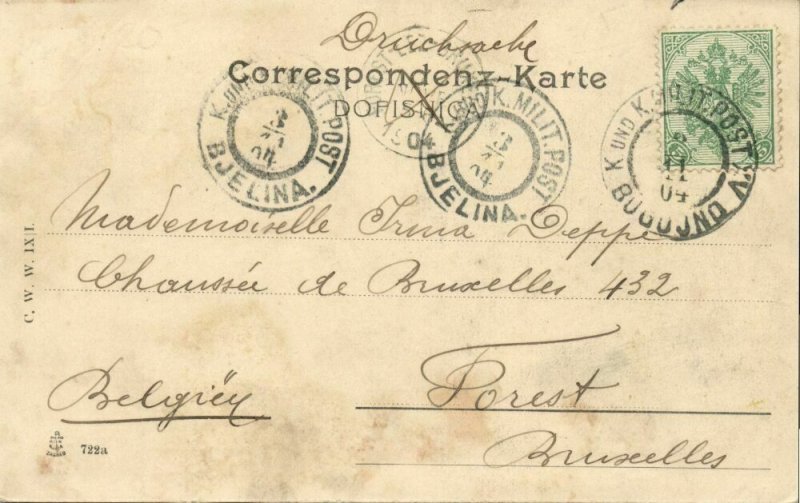 Drucksache
Correspondenz-Karte
DOPISNICA
K. UND K. MILIT. POST
BJELINA.
04
1904
K. UND K. MILIT. POST
BJELINA.
04
K. UND K. MILIT. POST XV
11
04
BUGOJNO
Mademoiselle Irma Deppe
Chaussée de Bruxelles 432
Belgiën
Forest
Bruxelles
C. W. W. IX I.
722a